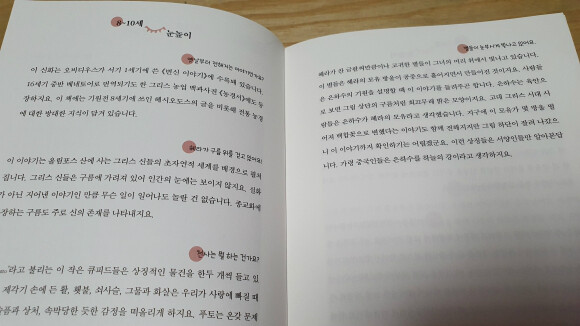 8-10세
눈높이
옛날부터 전해지는 이야기인가요?
이 신화는 오비디우스가 서기 1세기에 쓴 《변신 이야기》에 수록돼 있습니다.
16세기 중반 베네토어로 번역되기도 한 그리스 농업 백과사전 《농경서》에도 등
장하지요. 이 책에는 기원전 8세기에 쓰인 헤시오도스의 글을 비롯해 전통 농경
에 대한 방대한 지식이 담겨 있습니다.
헤라가 구름 위를 걷고 있어요!
이 이야기는 올림포스 산에 사는 그리스 신들의 초자연적 세계를 배경으로 펼쳐
집니다. 그리스 신들은 구름에 가려져 있어 인간의 눈에는 보이지 않지요. 실화
가 아닌 지어낸 이야기인 만큼 무슨 일이 일어나도 놀랄 건 없습니다. 종교화에
장하는 구름도 주로 신의 존재를 나타내지요.
천사는 뭘 하는 건가요?
라고 불리는 이 작은 큐피드들은 상징적인 물건을 한두 개씩 들고 있
제각기 손에 든 활, 횃불, 쇠사슬, 그물과 화살은 우리가 사랑에 빠질 때
슬픔과 상처, 속박당한 듯한 감정을 떠올리게 하지요. 푸토는 온갖 문제
별들이 눈부시게 빛나고 있어요.
헤라가 진 금관처럼 고귀한 별들이 그녀의 머리 위에서 빛나고 있습니다.
이 별들은 헤라의 모유 방울이 공중으로 흩어지면서 만들어진 것이지요. 사람들
은 은하수의 기원을 설명할 때 이 이야기를 들려주곤 합니다. 은하수는 육안으
로 보면 그림 상단의 구름처럼 희끄무레한 모양이지요. 고대 그리스 시대 사
람들은 은하수가 헤라의 모유라고 생각했습니다. 지구에 이 모유가 몇 방울 떨
어져 백합꽃으로 변했다는 이야기도 함께 전해지지만 그림 하단이 잘려 나갔으
니 이 이야기까지 확인하기는 어렵겠군요. 이런 상징들은 서양인들만 알아본답
니다. 가령 중국인들은 은하수를 하늘의 강이라고 생각하지요.